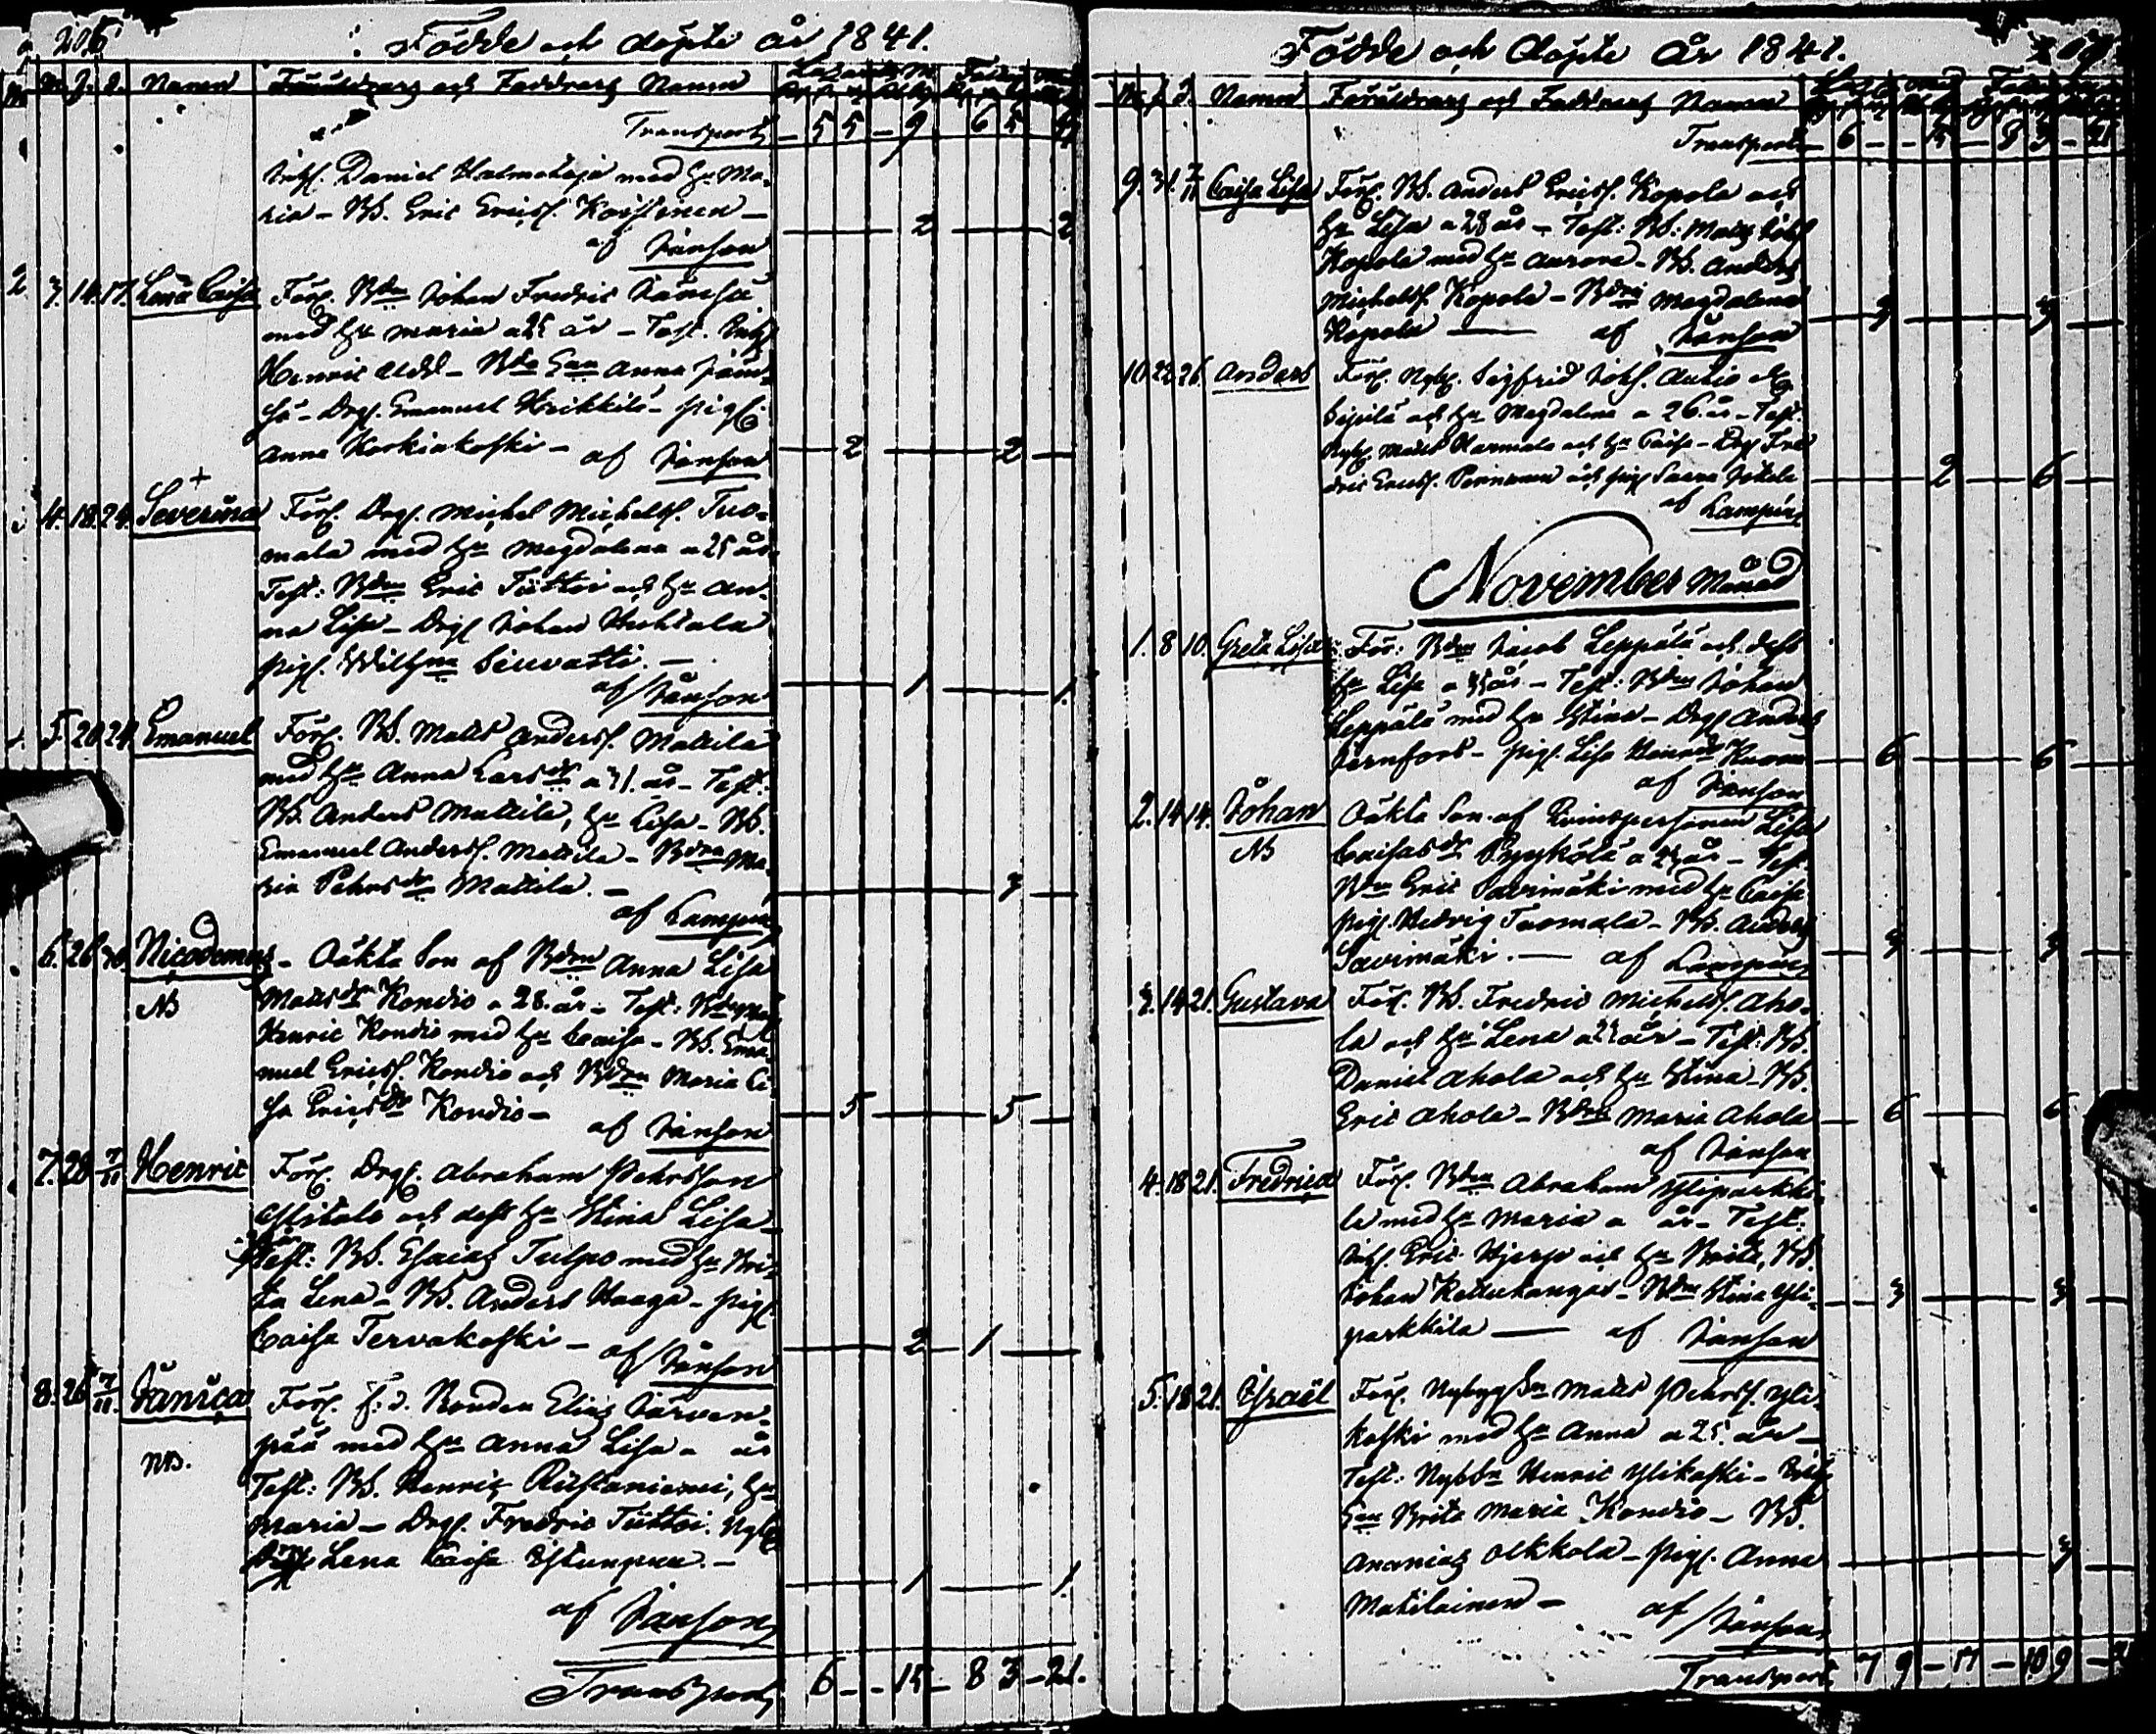 206
Födde och döpte år 1841.
N. F. D. Namn Föräldrars och Faddrars Namn
Transport 5 5 9 6 5
Daniel Halmetoja med hu Ma-
ria - BS. Eric Ericss. Koistinen - 2 2
af Janson
3. 14. 17. Lena Caisa Förl. Bdn Johan Fredric Jämsä
med hu Maria a 25 år - Test. Inhs.
Henric Ald - Bde Enn Anna Jäm-
sä - Drgn. Emanuel Heikkilä - Pig.
Anna Korkiakoski - af Janson 2 2
4. 18. 24. Severina + Förl. Drgn. Michel Michelss. Tuo-
mala med hu Magdalena a 25 år
Test: Bdn Eric Tüttoi och hu An-
na Lisa - Drgn Johan Huhtala
Pig. Wilhna Siuvatti. -
af Janson 1 1
5. 20. 24. Emanuel Förl. BS. Matts Anderss. Mattila
med hu Anna Larsdr a 31. år - Test:
BS. Anders Mattila, hu Lisa - BS.
Emanuel Anderss. Mattila - Bdra Ma-
ria Pehrsdr Mattila. - 3
af Lampén
6. 26. 30. Nicodemus - Oäkta Son af Bdrn Anna Lisa
NB Mattsdr Kondio a 28. år - Test: Bdn
Henric Kondio med hu Caisa - BS. Ema-
nuel Ericss. Kondio och Bdrn Maria Li-
sa Ericsdr Kondio -
af Janson 5 5
7. 28 7/11 Henric Förl. Drgn. Abraham Pehrsson
Ylitalo och dess hu Stina Lisa -
Test: BS. Esaias Tulpo med hu Bri-
ta Lena - BS. Anders Haaga - Pig.
Caisa Tervakoski - af Janson 2 1
8. 26 7/11 Janica Förl. f: d. Bonden Elias Järven-
NB. pää med hu Anna Lisa a år
Test: BS. Henric Rustaniemi, hu
Maria - Drgn. Fredric Tüttoi.
Lena Caisa - 1 1
af Janson
Transport 6 - - 15 - 8 3 - 21.
Födde och döpte år 1841.
Namn Föräldrars och Faddrars Namn
Transport 6 - - 15 - 8 3 - 21
9. 31. 7/11 Caisa Lisa Förl. BS. Anders Ericss. Kopola och
hu Lisa a 28 år - Test: BS: Matts Johss
Kopola med hu Aurora - BS. Anders
Michelss. Kopola - Bdra Magdalena
Kopola - af Janson 3 3
10. 22. 26. Anders Förl. Nybg. Sigfrid Johs. Autio el.
Seppilä och hu Magdalena a 26. år - Test.
Nybg. Matts Harmala och hu Caisa - Drg Fre-
dric Ericss. Peränen och pig Saara Jokela 2 6
af Lampén
November Månad
1. 8 10. Greta Lisa För: Bdn Jacob Leppälä och dess
hu Lisa a 35 år - Test: Bdn Johan
Leppälä med hu Stina - Drgn Anders
Järnfors - Pig. Lisa Henricsdr 6 6
af Janson
2. 14 14. Johan Oäkta Son af Qvinspersonen Lisa
NB Caisasdr Pyykölä a 23 år - Test
Bdn Eric Savimäki med hu Caisa
Pig. Hedvig Tuomala - BS. Anders
Savimäki. - af Lampén 3 3
3. 14 21. Gustava Förl. BS. Fredric Michelss. Aho-
la och hu Lena a 25 år - Test: BS.
Daniel Ahola och hu Stina - BS.
Eric Ahola - Bdra Maria Ahola 6 6
af Janson
4. 18 21. Fredrica Förl. Bdn Abraham Yliparkki-
la med hu Maria a år - Test:
Inhs. Eric Hjerp och hu Brita, BS.
Johan Kettukangas - Bdra Stina Yli-
parkkila - af Janson 3 3
5. 18 21. Israël Förl. Nybyggrn Matts Pehrss. Yli-
koski med hu Anna a 25. år -
Test: Nybbn Henric Ylikoski -
Enn Brita Maria Kondio - BS.
Ananias Olkkola - Pig. Anna 3
Matilainen - af Janson
Transport 7 9 - 17 - 10 9 -